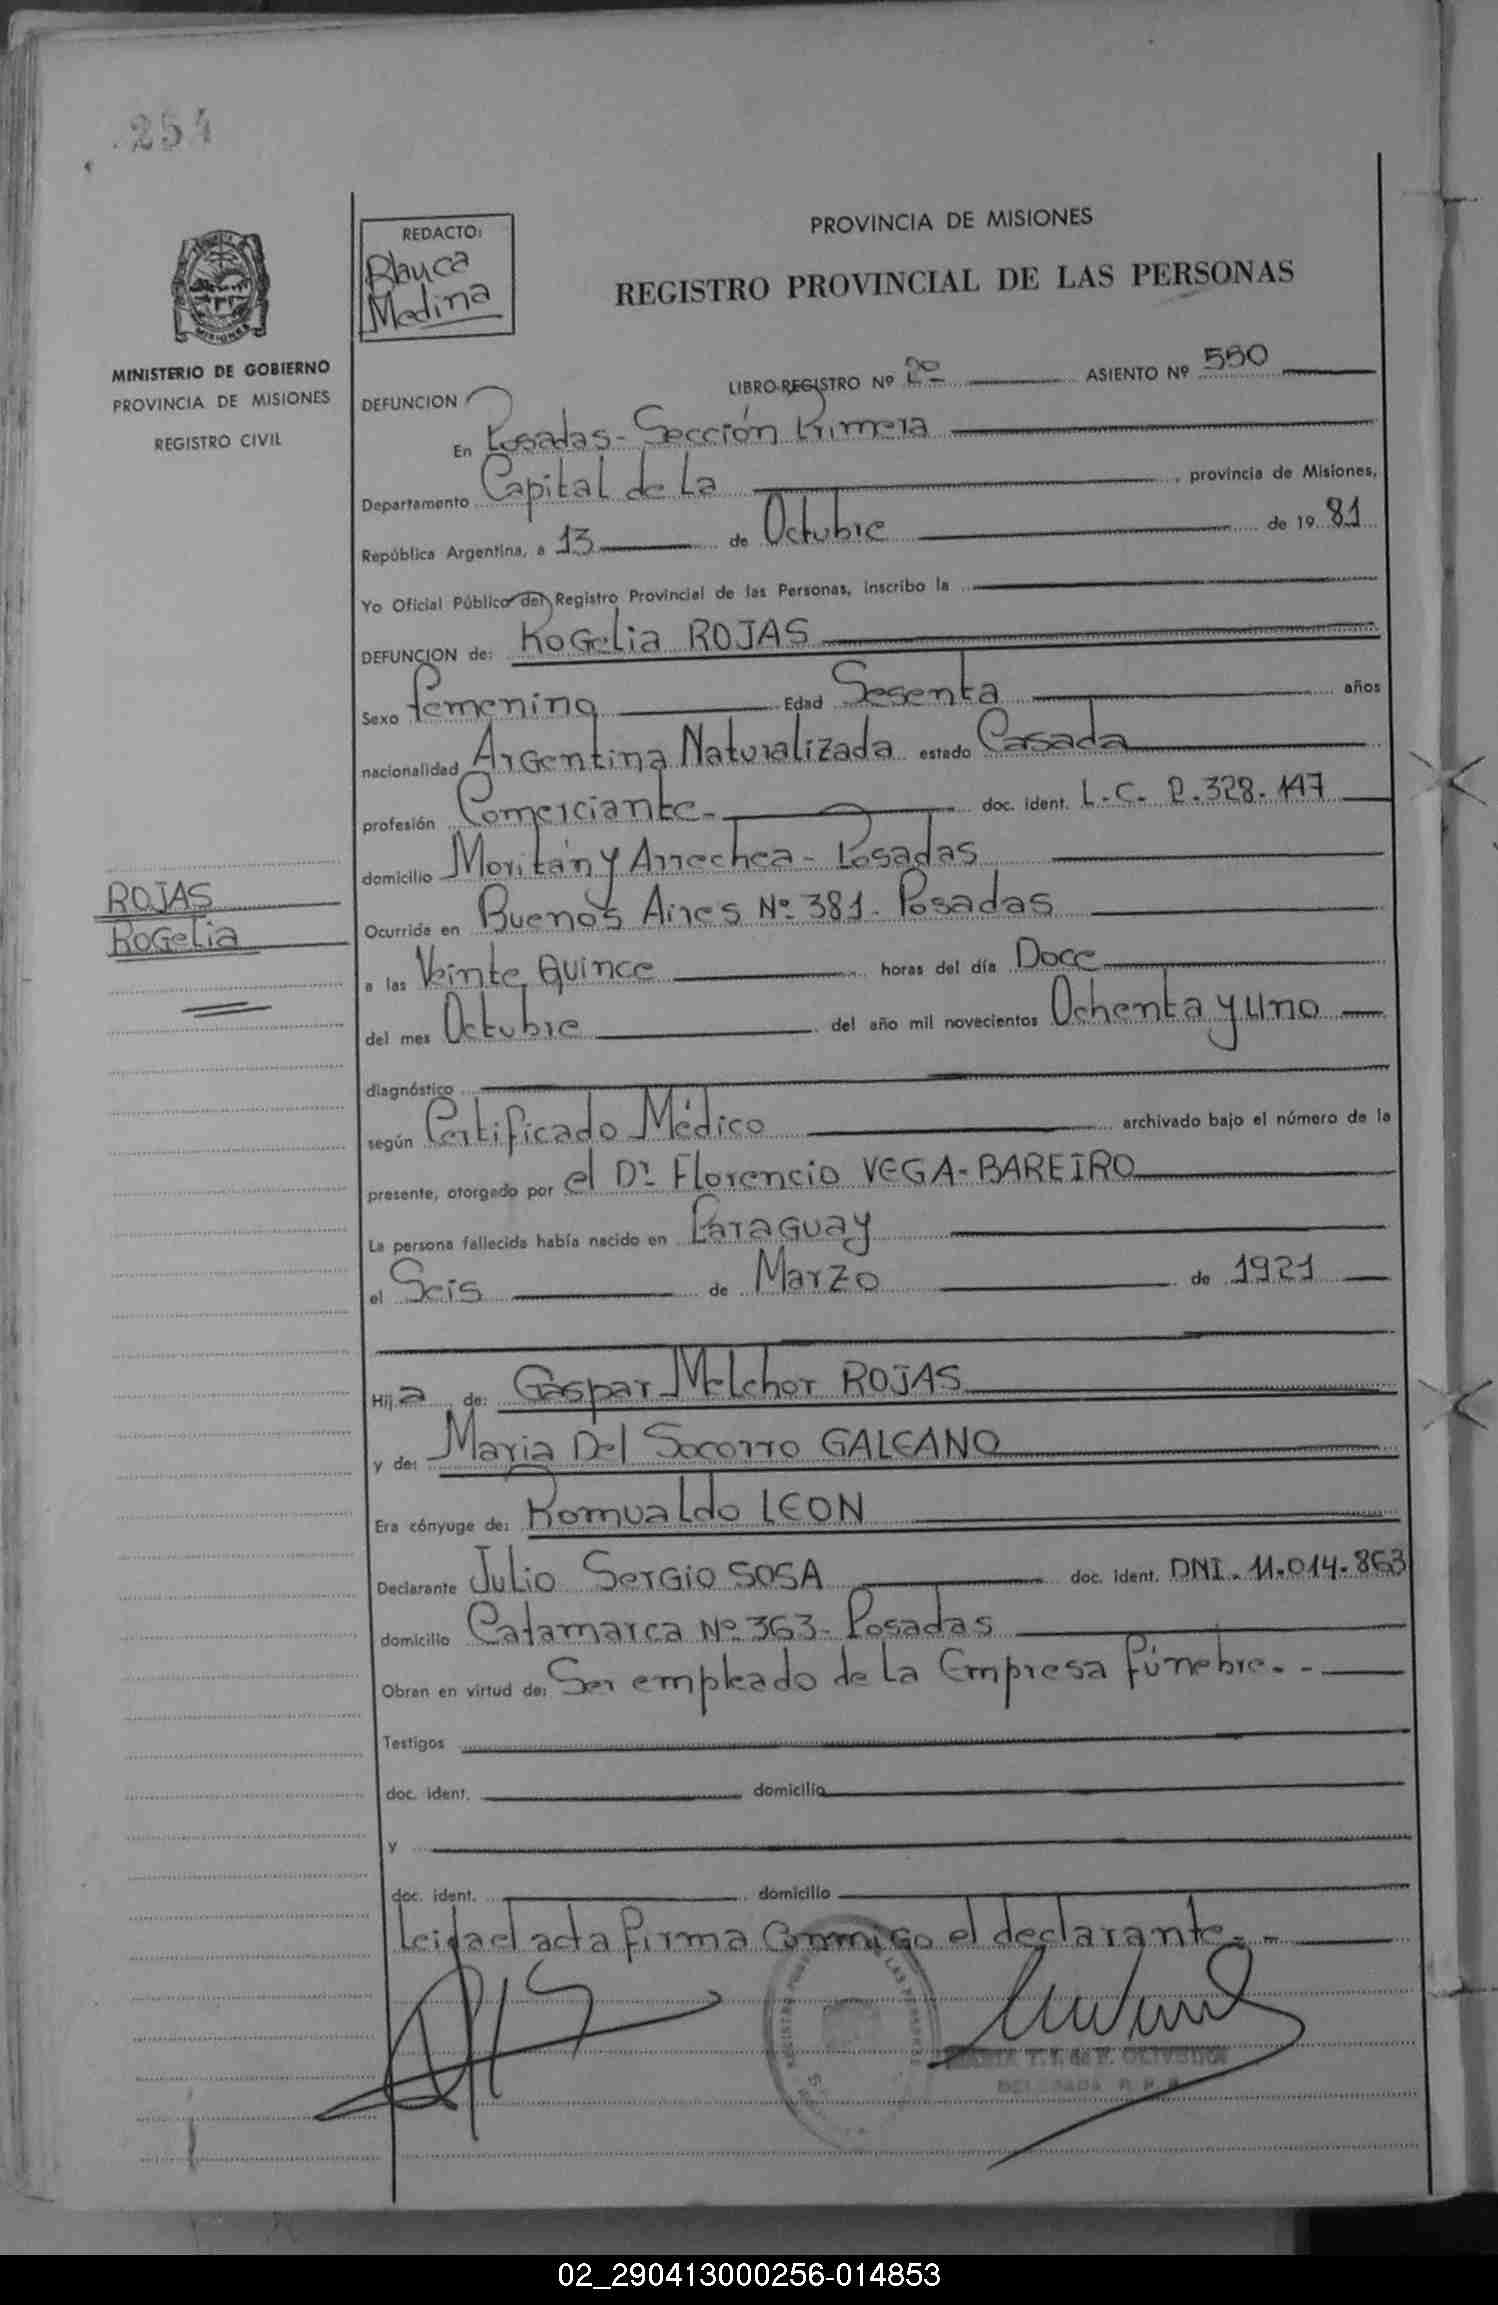 254
MISIONES
MINISTERIO DE GOBIERNO
PROVINCIA DE MISIONES
REGISTRO CIVIL
REDACTO:
Blanca
Medina
PROVINCIA DE MISIONES
REGISTRO PROVINCIAL DE LAS PERSONAS
LIBRO-REGISTRO Nº 2º ASIENTO Nº 550
DEFUNCION
En Posadas - Sección Primera
Departamento Capital de La , provincia de Misiones,
República Argentina, a 13 de Octubre de 19 81
Yo Oficial Público del Registro Provincial de las Personas, inscribo la
DEFUNCION de: Rogelia ROJAS
Sexo femenino Edad Sesenta años
nacionalidad Argentina Naturalizada estado Casada
profesión Comerciante- doc. ident. L.C. 2.328.147
domicilio Moritán y Arrechea - Posadas
Ocurrida en Buenos Aires Nº 381. Posadas
a las Veinte Quince horas del día Doce
del mes Octubre del año mil novecientos Ochenta y uno
diagnóstico
según Certificado Médico archivado bajo el número de la
presente, otorgado por el Dr. Florencio VEGA-BAREIRO
La persona fallecida había nacido en Paraguay
el Seis de Marzo de 1921
Hij a de: Gaspar Melchor ROJAS
y de: Maria Del Socorro GALEANO
Era cónyuge de: Romualdo LEON
Declarante Julio Sergio SOSA doc. ident. DNI. 11.014.863
domicilio Catamarca Nº 363- Posadas
Obran en virtud de: Ser empleado de la Empresa fúnebre. -
Testigos
doc. ident. domicilio
y
doc. ident. domicilio
Leida el acta firma conmigo el declarante. -
ROJAS
Rogelia
MARIA T. F. de F. OLIVEIRA
DELEGADA R. P. P.
02_290413000256-014853